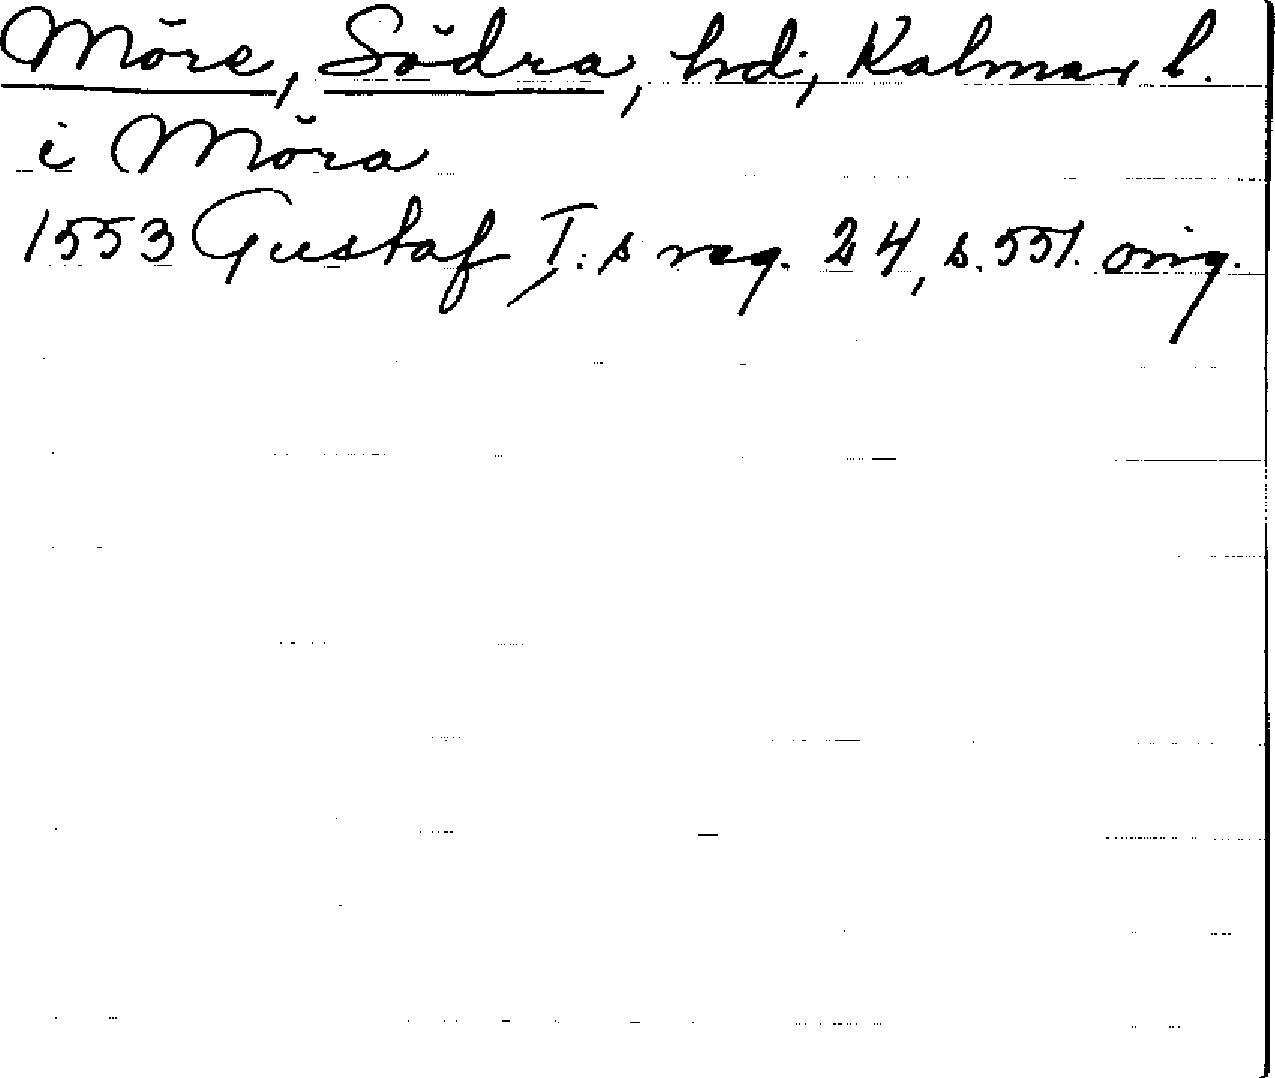 Möre, Södra, hd, Kalmar l.
i Möra
1553 Gustaf I:s reg. 24, s. 551. orig.